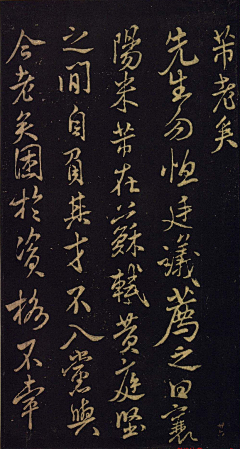 芾老矣
先生勿恤廷議薦之曰襄
陽米芾在蘇軾黃庭堅
之間自負其才不入黨與
今老矣困於資格不幸